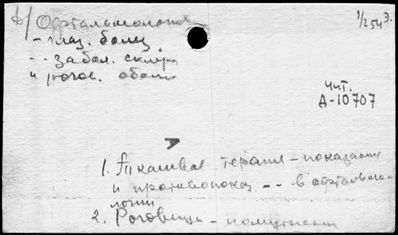 б/ Офтальмология 1/254 Э.
- глаз. болез.
-- забол. склеры
и рогов. оболо
Чит.
А-10707
1. Тканевая терапия - показания
и противопоказ -- в офтальмо-
логии
2. Роговица - помутнения